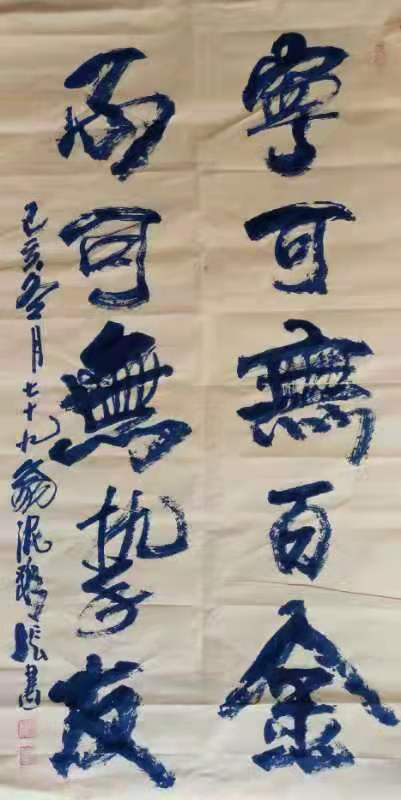 寧可無百金
不可無摯友
己亥冬月七十九翁泥鴻張書